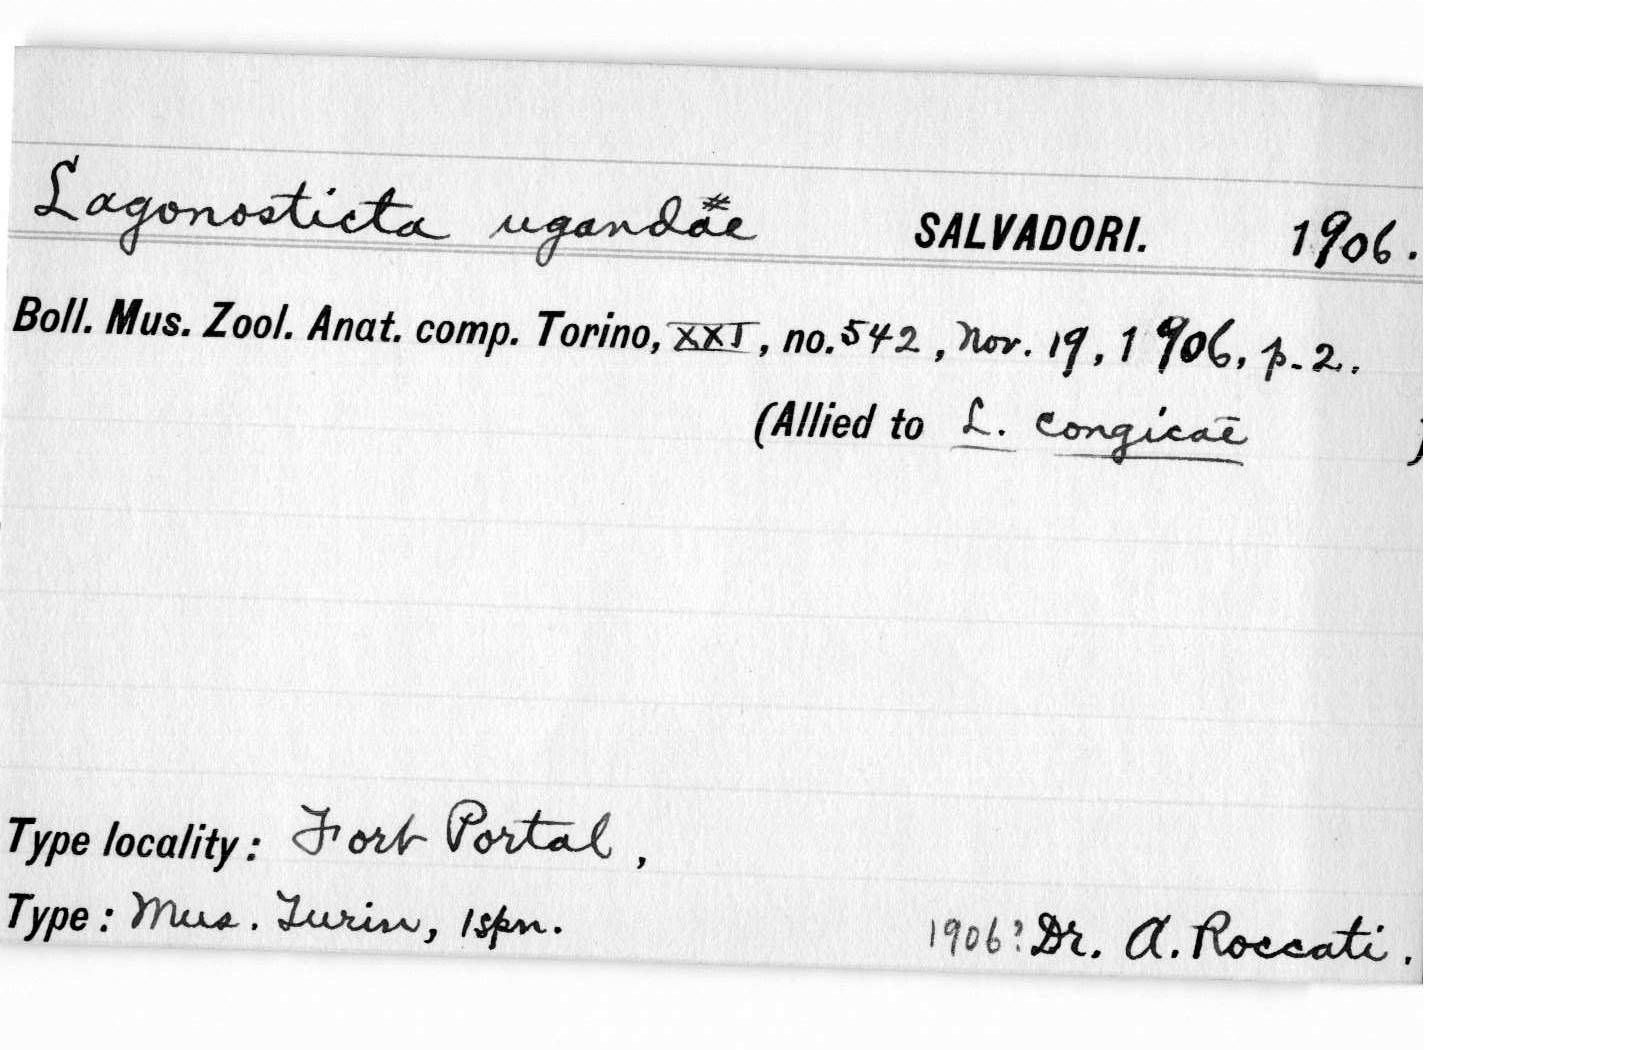 Lagonosticta ugandæ SALVADORI. 1906.
Boll. Mus. Zool. Anat. comp. Torino, XXI, no. 542, Nov. 19, 1906, p. 2.
(Allied to L. congicae )
Type locality: Fort Portal,
Type: Mus. Turin, 1 spn. 1906? Dr. A. Roccati.